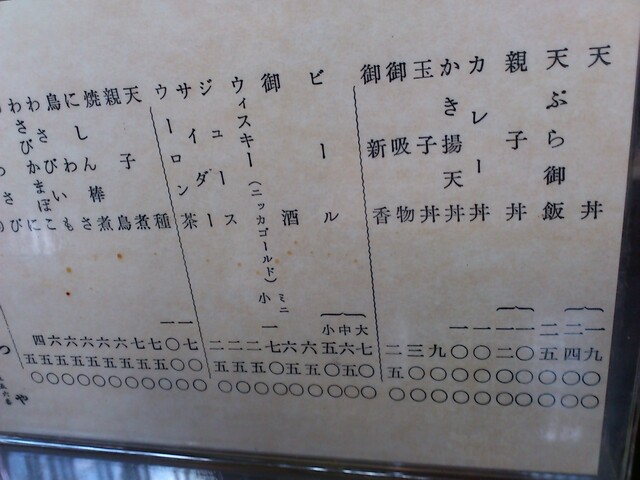 天丼 一九〇〇 二四〇〇
天ぷら御飯 二五〇〇
親子丼 一〇〇〇 一二〇〇
カレー丼 一〇〇〇
かき揚天丼 一〇〇〇
玉子丼 九〇〇
御吸物 三〇〇
御新香 二五〇
ビール 大七〇〇 中六五〇 小五〇〇
御酒 六五〇
ウィスキー(ニッカゴールド) ミニ六五〇 小一七〇〇
ジュース 二五〇
サイダー 二五〇
ウーロン茶 二五〇
天種 一七〇〇
親子煮 一〇〇〇
焼鳥 七五〇
にしん棒煮 七五〇
鳥わさ 六五〇
わさびいも 六五〇
わさびかまぼこ 六五〇